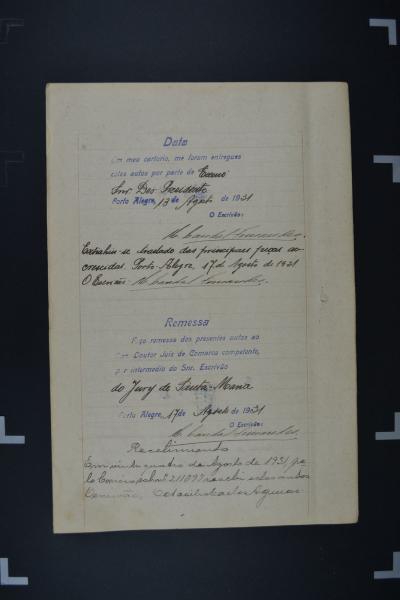 Data
Em meu cartorio, me foram entregues
estes autos por parte de Exmo
Snr Des Presidente
Porto Alegre, 13 de Agosto de 1931
O Escrivão:
Fernandes
Extrahiu-se traslado das principais peças ac-
crescidas. Porto Alegre, 17 de Agosto de 1931
O Escrivão Fernandes
Remessa
Faço remessa dos presentes autos ao
Snr. Doutor Juis de Comarca competente,
por intermedio do Snr. Escrivão
do Jury de Santa Maria
Porto Alegre, 17 de Agosto de 1931
O Escrivão:
Fernandes
Recebimento
Em vinte quatro de Agosto de 1931 pe-
lo Correio sob nº 211097 recebi estes autos
Escrivão,